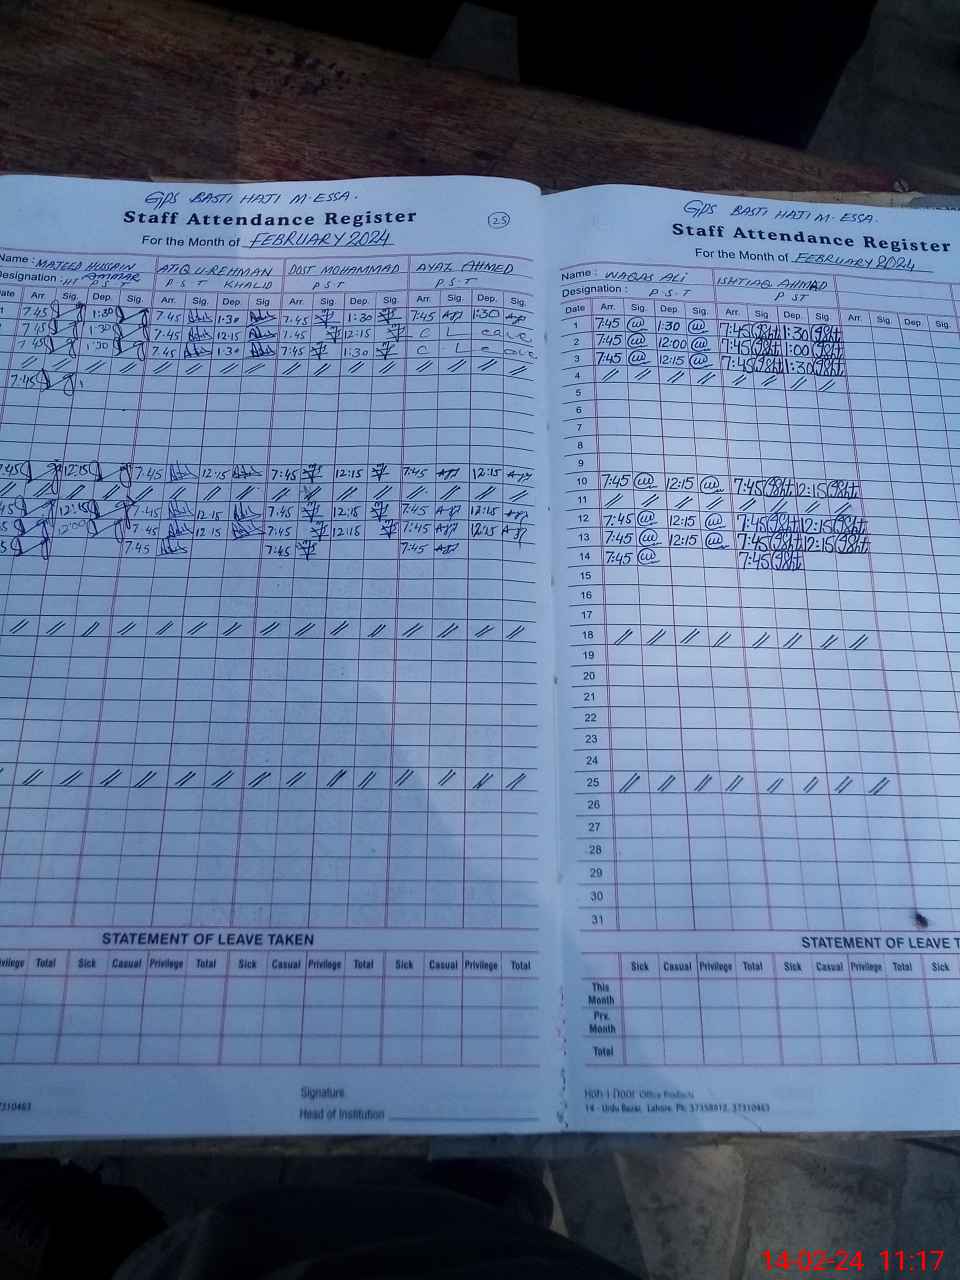 GPS BASTI HAJI M. ESSA.
Staff Attendance Register
25
For the Month of FEBRUARY 2024
Name : MAJEED HUSSAIN AMMAR ATIQ U-REHMAN KHALID DOST MOHAMMAD AYAZ AHMED
Designation : HT P S T P S T P.S.T P.S.T
Date Arr. Sig. Dep. Sig. Arr. Sig. Dep. Sig. Arr. Sig. Dep. Sig. Arr. Sig. Dep. Sig.
1 7:45 1:30 7:45 1:30 7:45 1:30 7:45 1:30
7:45 1:30 7:45 12:15 7:45 12:15 C L eave
7:45 1:30 7:45 1:30 7:45 1:30 C L eave
7:45
7:45 12:15 7:45 12:15 7:45 12:15 7:45 12:15
45 12:15 7:45 12:15 7:45 12:15 7:45 12:15
12:00 7:45 12:15 7:45 12:15 7:45 12:15
7:45 7:45 7:45
STATEMENT OF LEAVE TAKEN
vilege Total Sick Casual Privilege Total Sick Casual Privilege Total Sick Casual Privilege Total
Signature
Head of Institution
37310463
GPS BASTI HAJI M. ESSA.
Staff Attendance Register
For the Month of FEBRUARY 2024
Name : WAQAS ALI ISHTIAQ AHMAD
Designation : P.S.T P ST
Date Arr. Sig. Dep. Sig. Arr. Sig. Dep. Sig. Arr. Sig. Dep. Sig.
1 7:45 1:30 7:45 1:30
2 7:45 12:00 7:45 1:00
3 7:45 12:15 7:45 1:30
4
5
6
7
8
9
10 7:45 12:15 7:45 12:15
11
12 7:45 12:15 7:45 12:15
13 7:45 12:15 7:45 12:15
14 7:45 7:45
15
16
17
18
19
20
21
22
23
24
25
26
27
28
29
30
31
STATEMENT OF LEAVE T
Sick Casual Privilege Total Sick Casual Privilege Total Sick
This Month
Prv. Month
Total
Office Products
14 - Urdu Bazar, Lahore. Ph: 37358812, 37310463
14-02-24 11:17